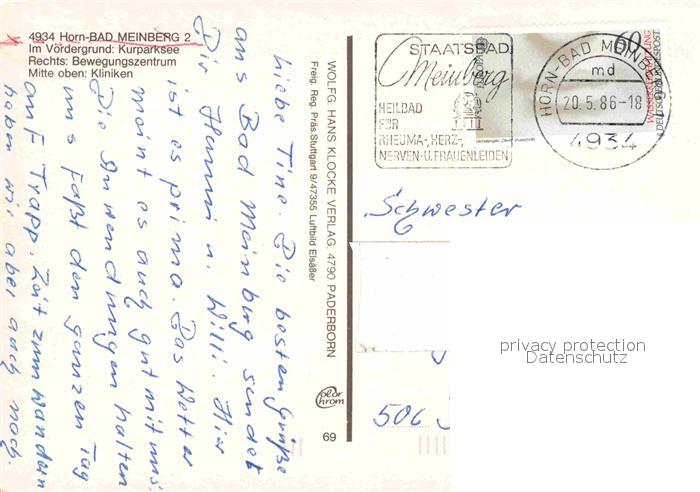 4934 Horn-BAD MEINBERG 2
Im Vordergrund: Kurparksee
Rechts: Bewegungszentrum
Mitte oben: Kliniken
liebe Tine. Die besten Grüße
aus Bad Meinberg sendet
Dir Hanni u. Willi. Hier
ist es prima. Das Wetter
meint es auch gut mit uns.
Die Anwendungen halten
uns faßt den ganzen Tag
auf Trapp. Zeit zum wandern
haben wir aber auch noch.
WOLFG. HANS KLOCKE VERLAG, 4790 PADERBORN
Freig. Reg. Präs. Stuttgart 9/47355 Luftbild Elsäßer
color
chrom
69
STAATSBAD
Meinberg
HEILBAD
FÜR
RHEUMA-, HERZ-,
NERVEN- U. FRAUENLEIDEN
60
DEUTSCHE BUNDESPOST
HORN-BAD MEINBERG
md
20.5.86-18
4934
Schwester
506
privacy protection
Datenschutz